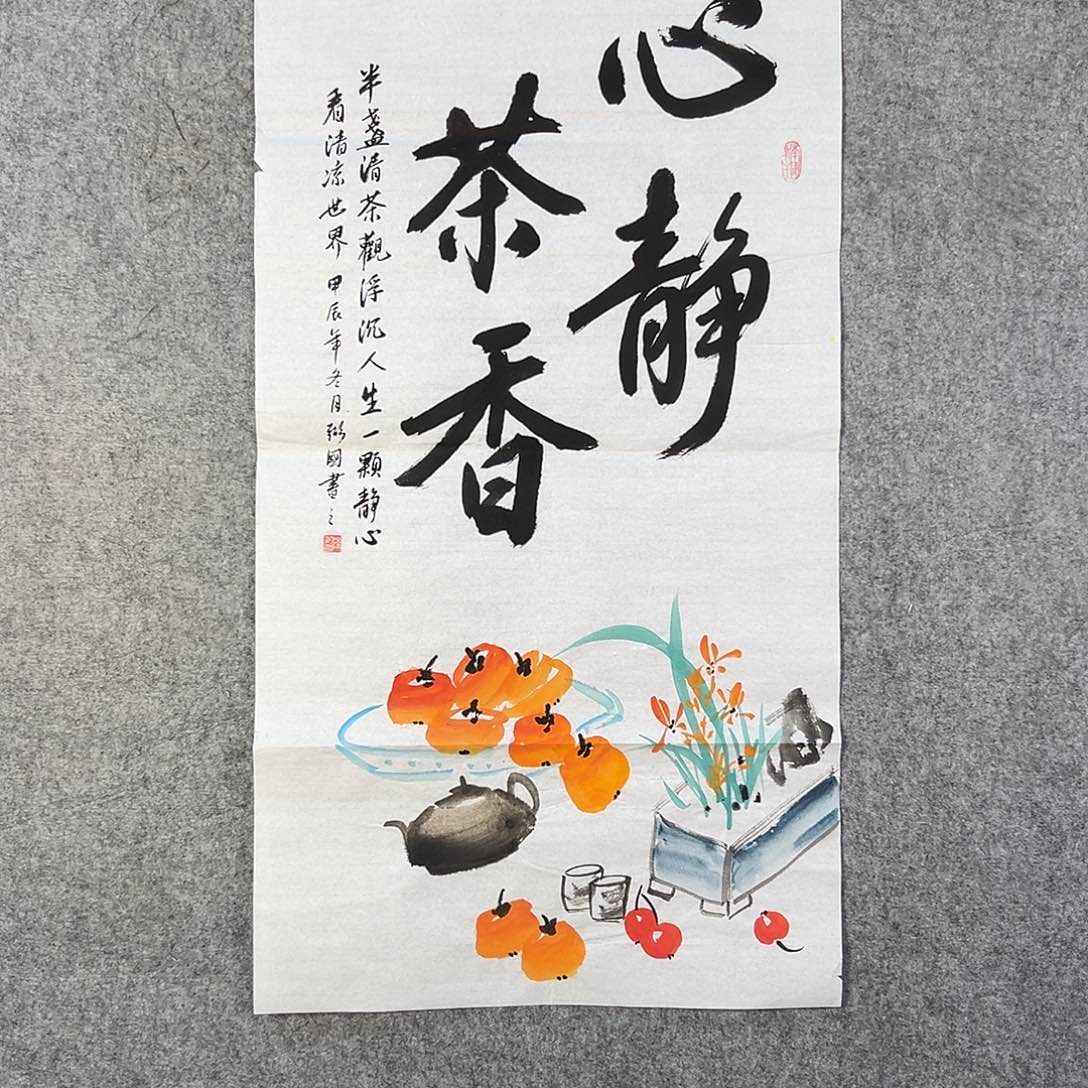 心静
茶香
半盏清茶觀浮沉人生一顆静心
看清凉世界 甲辰年冬月 國書之